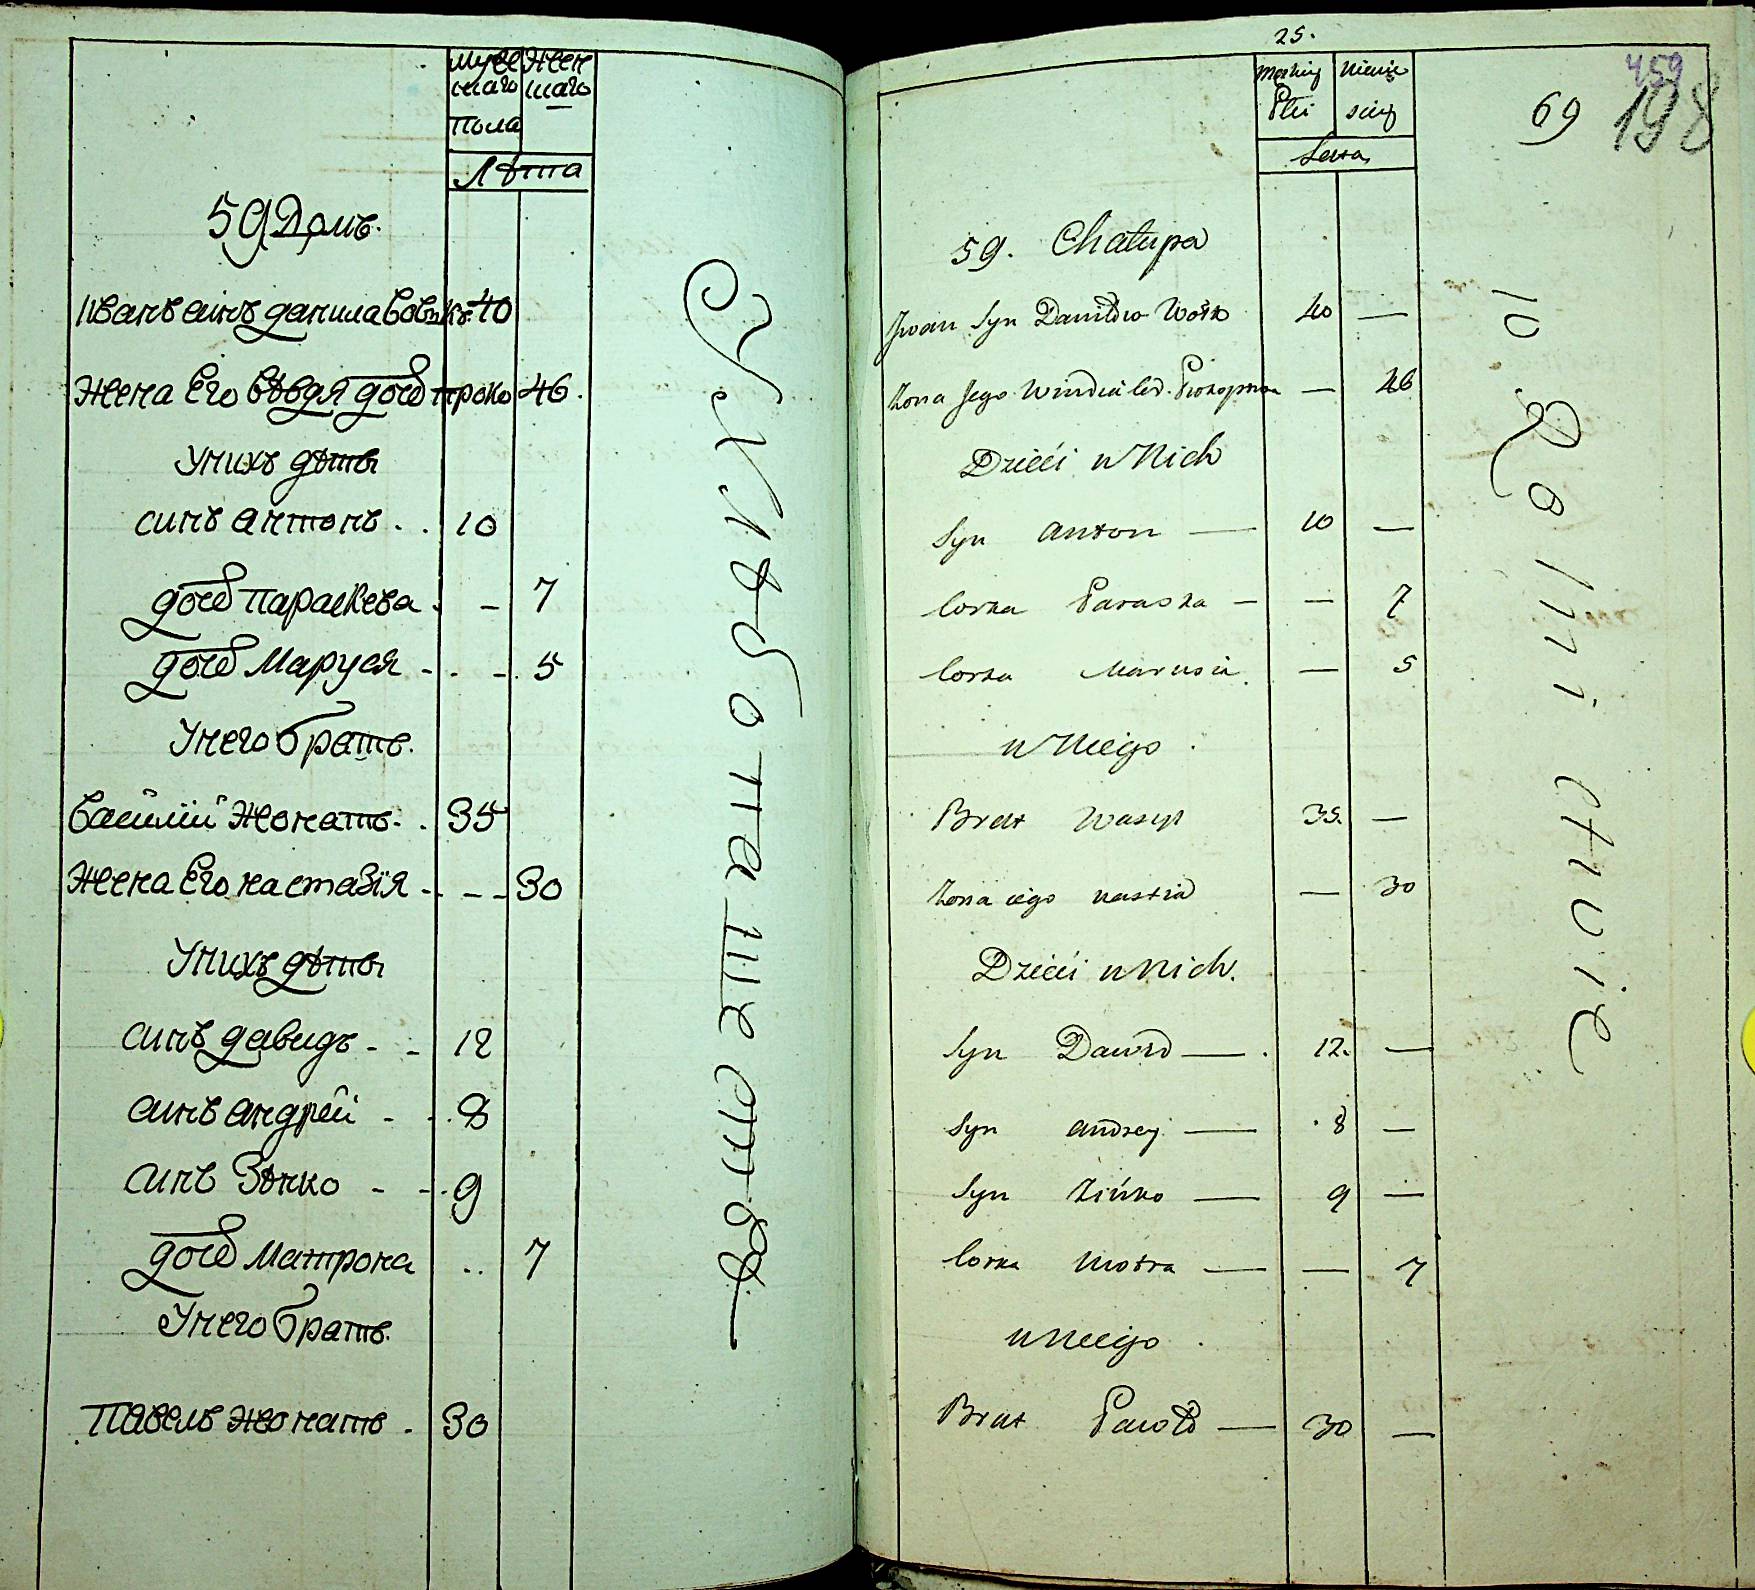 муже жен
скаго скаго
пола
Лѣта
59 Домъ.
Иванъ синъ данила Вовкъ 40
жена Его Вѣвдя дочь проко 46.
Унихъ дѣти
синъ антонъ . . 10
дочь параскева . - 7
дочь Маруся - . - 5
Унего братъ.
Василий жонатъ. . 35
жена Его настазія - - - 30
Унихъ дѣти
синъ давидъ - - 12
синъ андрей - - 8
синъ Зѣнко - - 9
дочь Матрона .. 7
Унего братъ.
павелъ жонатъ . 30
У Хлѣбопашество
25.
459
69 198
Męskiej Płci
Lata
59. Chałupa
Jwan Syn Daniłow Wołk 40 —
Żona Jego Prokopowa — 46
Dzieći u Nich
Syn Anton — 10 —
Corka Paraska — — 7
Corka Marusia — 5
u Niego .
Brat Wasyl 35. —
Żona iego Nastia — 30
Dzieći u Nich.
Syn Dawid — 12. —
Syn Andrey — 8 —
Syn Zińko — 9 —
Corka Motra — — 7
u Niego .
Brat Paweł — 30 —
10. Rolnictwie